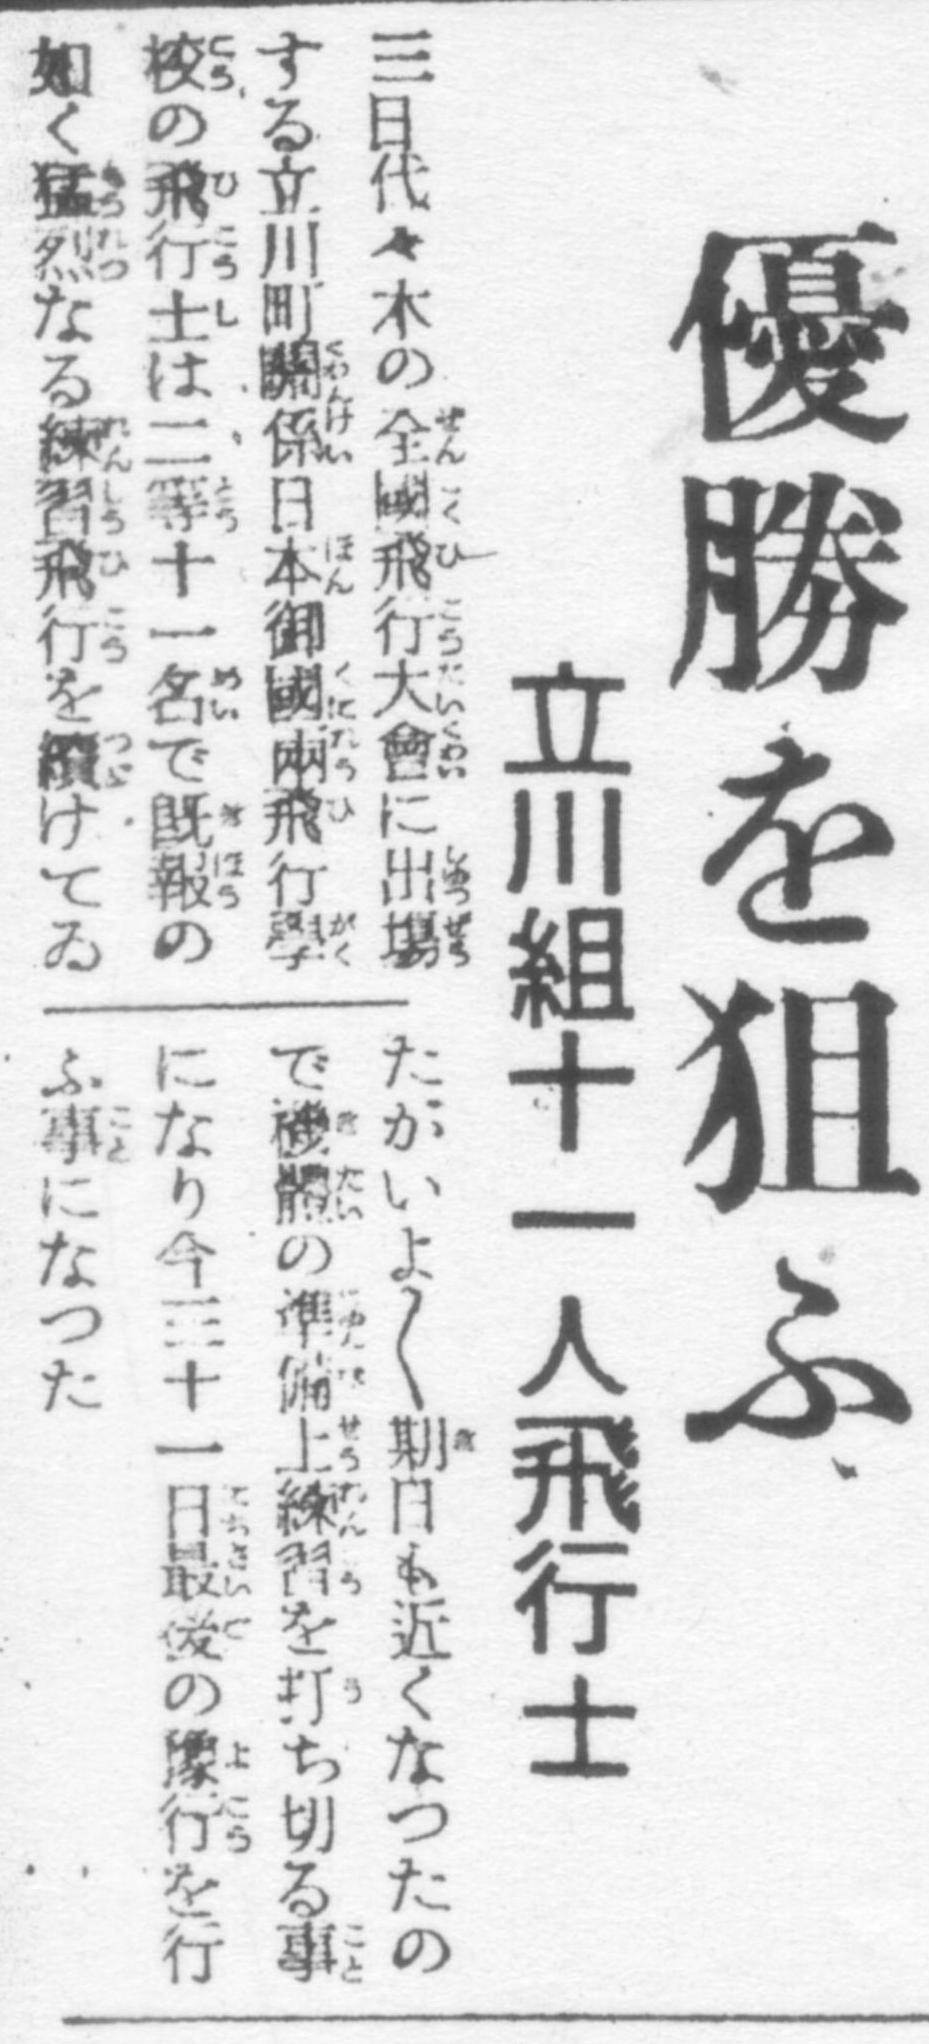 優勝を狙ふ
立川組十一人飛行士
三日代々木の全國飛行大會に出場
する立川町關係日本御國兩飛行學
校の飛行士は二等十一名で既報の
如く猛烈なる練習飛行を續けてゐ
たがいよ〳〵期日も近くなつたの
で機體の準備上練習を打ち切る事
になり今三十一日最後の豫行を行
ふ事になつた